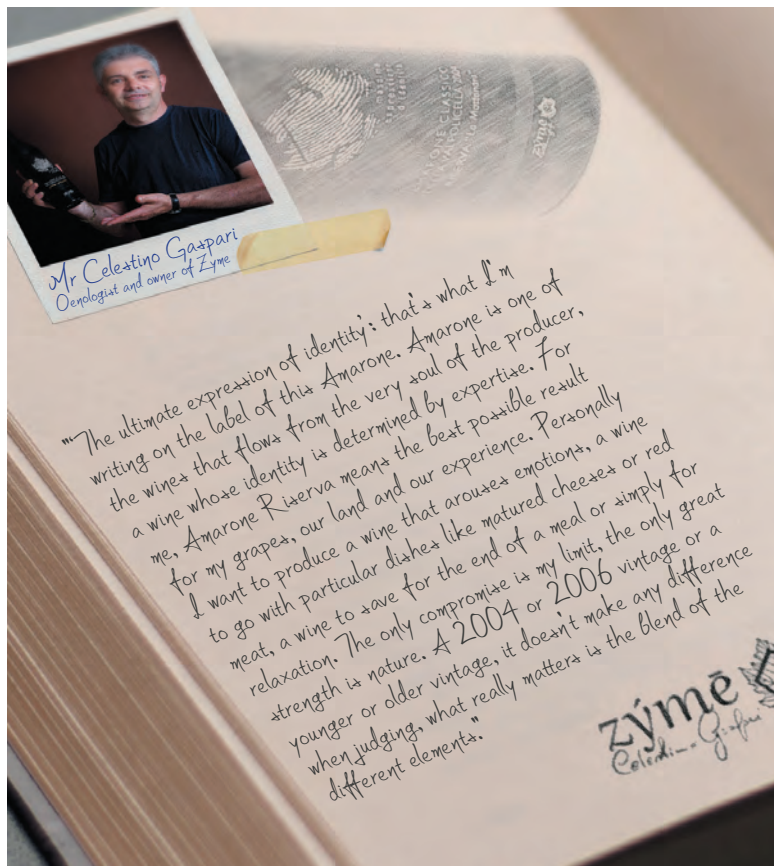 AMARONE CLASSICO
zýmē
Mr Celestino Gaspari
Oenologist and owner of Zyme
"'The ultimate expression of identity': that's what I'm
writing on the label of this Amarone. Amarone is one of
the wines that flows from the very soul of the producer,
a wine whose identity is determined by expertise. For
me, Amarone Riserva means the best possible result
for my grapes, our land and our experience. Personally
I want to produce a wine that arouses emotions, a wine
to go with particular dishes like matured cheeses or red
meat, a wine to save for the end of a meal or simply for
relaxation. The only compromise is my limit, the only great
strength is nature. A 2004 or 2006 vintage or a
younger or older vintage, it doesn't make any difference
when judging, what really matters is the blend of the
different elements."
zýmē
Celestino Gaspari